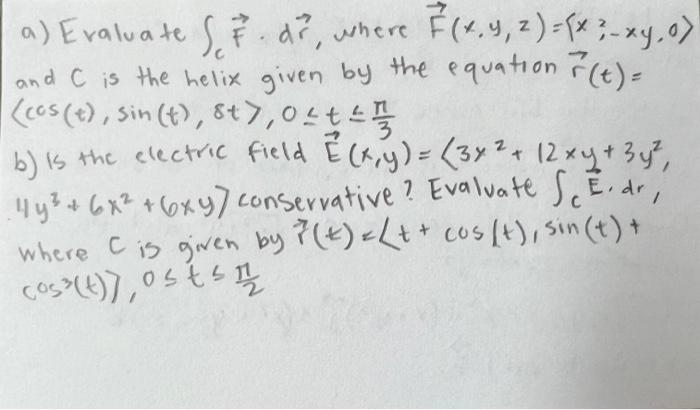 a) Evaluate ∫_C F⃗ · dr⃗, where F⃗(x,y,z)=⟨x², -xy, 0⟩
and C is the helix given by the equation r⃗(t)=
⟨cos(t), sin(t), 8t⟩, 0≤t≤π/3
b) Is the electric field E⃗(x,y)=⟨3x²+12xy+3y²,
4y³+6x²+6xy⟩ conservative? Evaluate ∫_C E⃗·dr,
where C is given by r⃗(t)=⟨t+cos(t), sin(t)+
cos³(t)⟩, 0≤t≤π/2